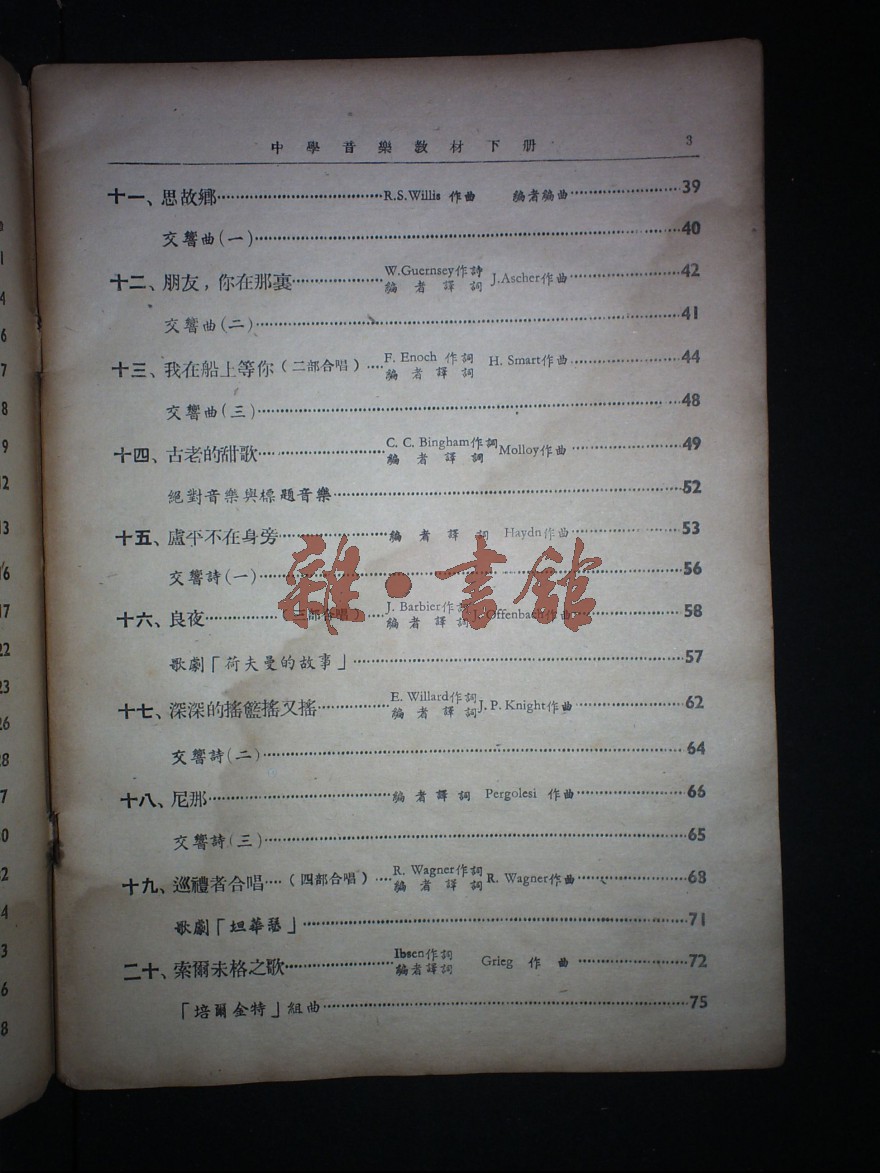 中學音樂教材下册 3
十一、思故鄉 R.S.Willis 作曲 編者編曲 39
交響曲(一) 40
十二、朋友，你在那裏 W.Guernsey作詩 編者譯詞 J.Ascher作曲 42
交響曲(二) 41
十三、我在船上等你(二部合唱) F. Enoch 作詞 編者譯詞 H. Smart作曲 44
交響曲(三) 48
十四、古老的甜歌 C. C. Bingham作詞 編者譯詞 Molloy作曲 49
絕對音樂與標題音樂 52
十五、盧平不在身旁 編者譯詞 Haydn作曲 53
交響詩(一) 56
十六、良夜(三部合唱) J. Barbier作詞 編者譯詞 J. Offenbach作曲 58
歌劇「荷夫曼的故事」 57
十七、深深的搖籃搖又搖 E. Willard作詞 編者譯詞 J. P. Knight作曲 62
交響詩(二) 64
十八、尼那 編者譯詞 Pergolesi 作曲 66
交響詩(三) 65
十九、巡禮者合唱(四部合唱) R. Wagner作詞 編者譯詞 R. Wagner作曲 68
歌劇「坦華瑟」 71
二十、索爾未格之歌 Ibsen作詞 編者譯詞 Grieg 作曲 72
「培爾金特」組曲 75
雜·書館